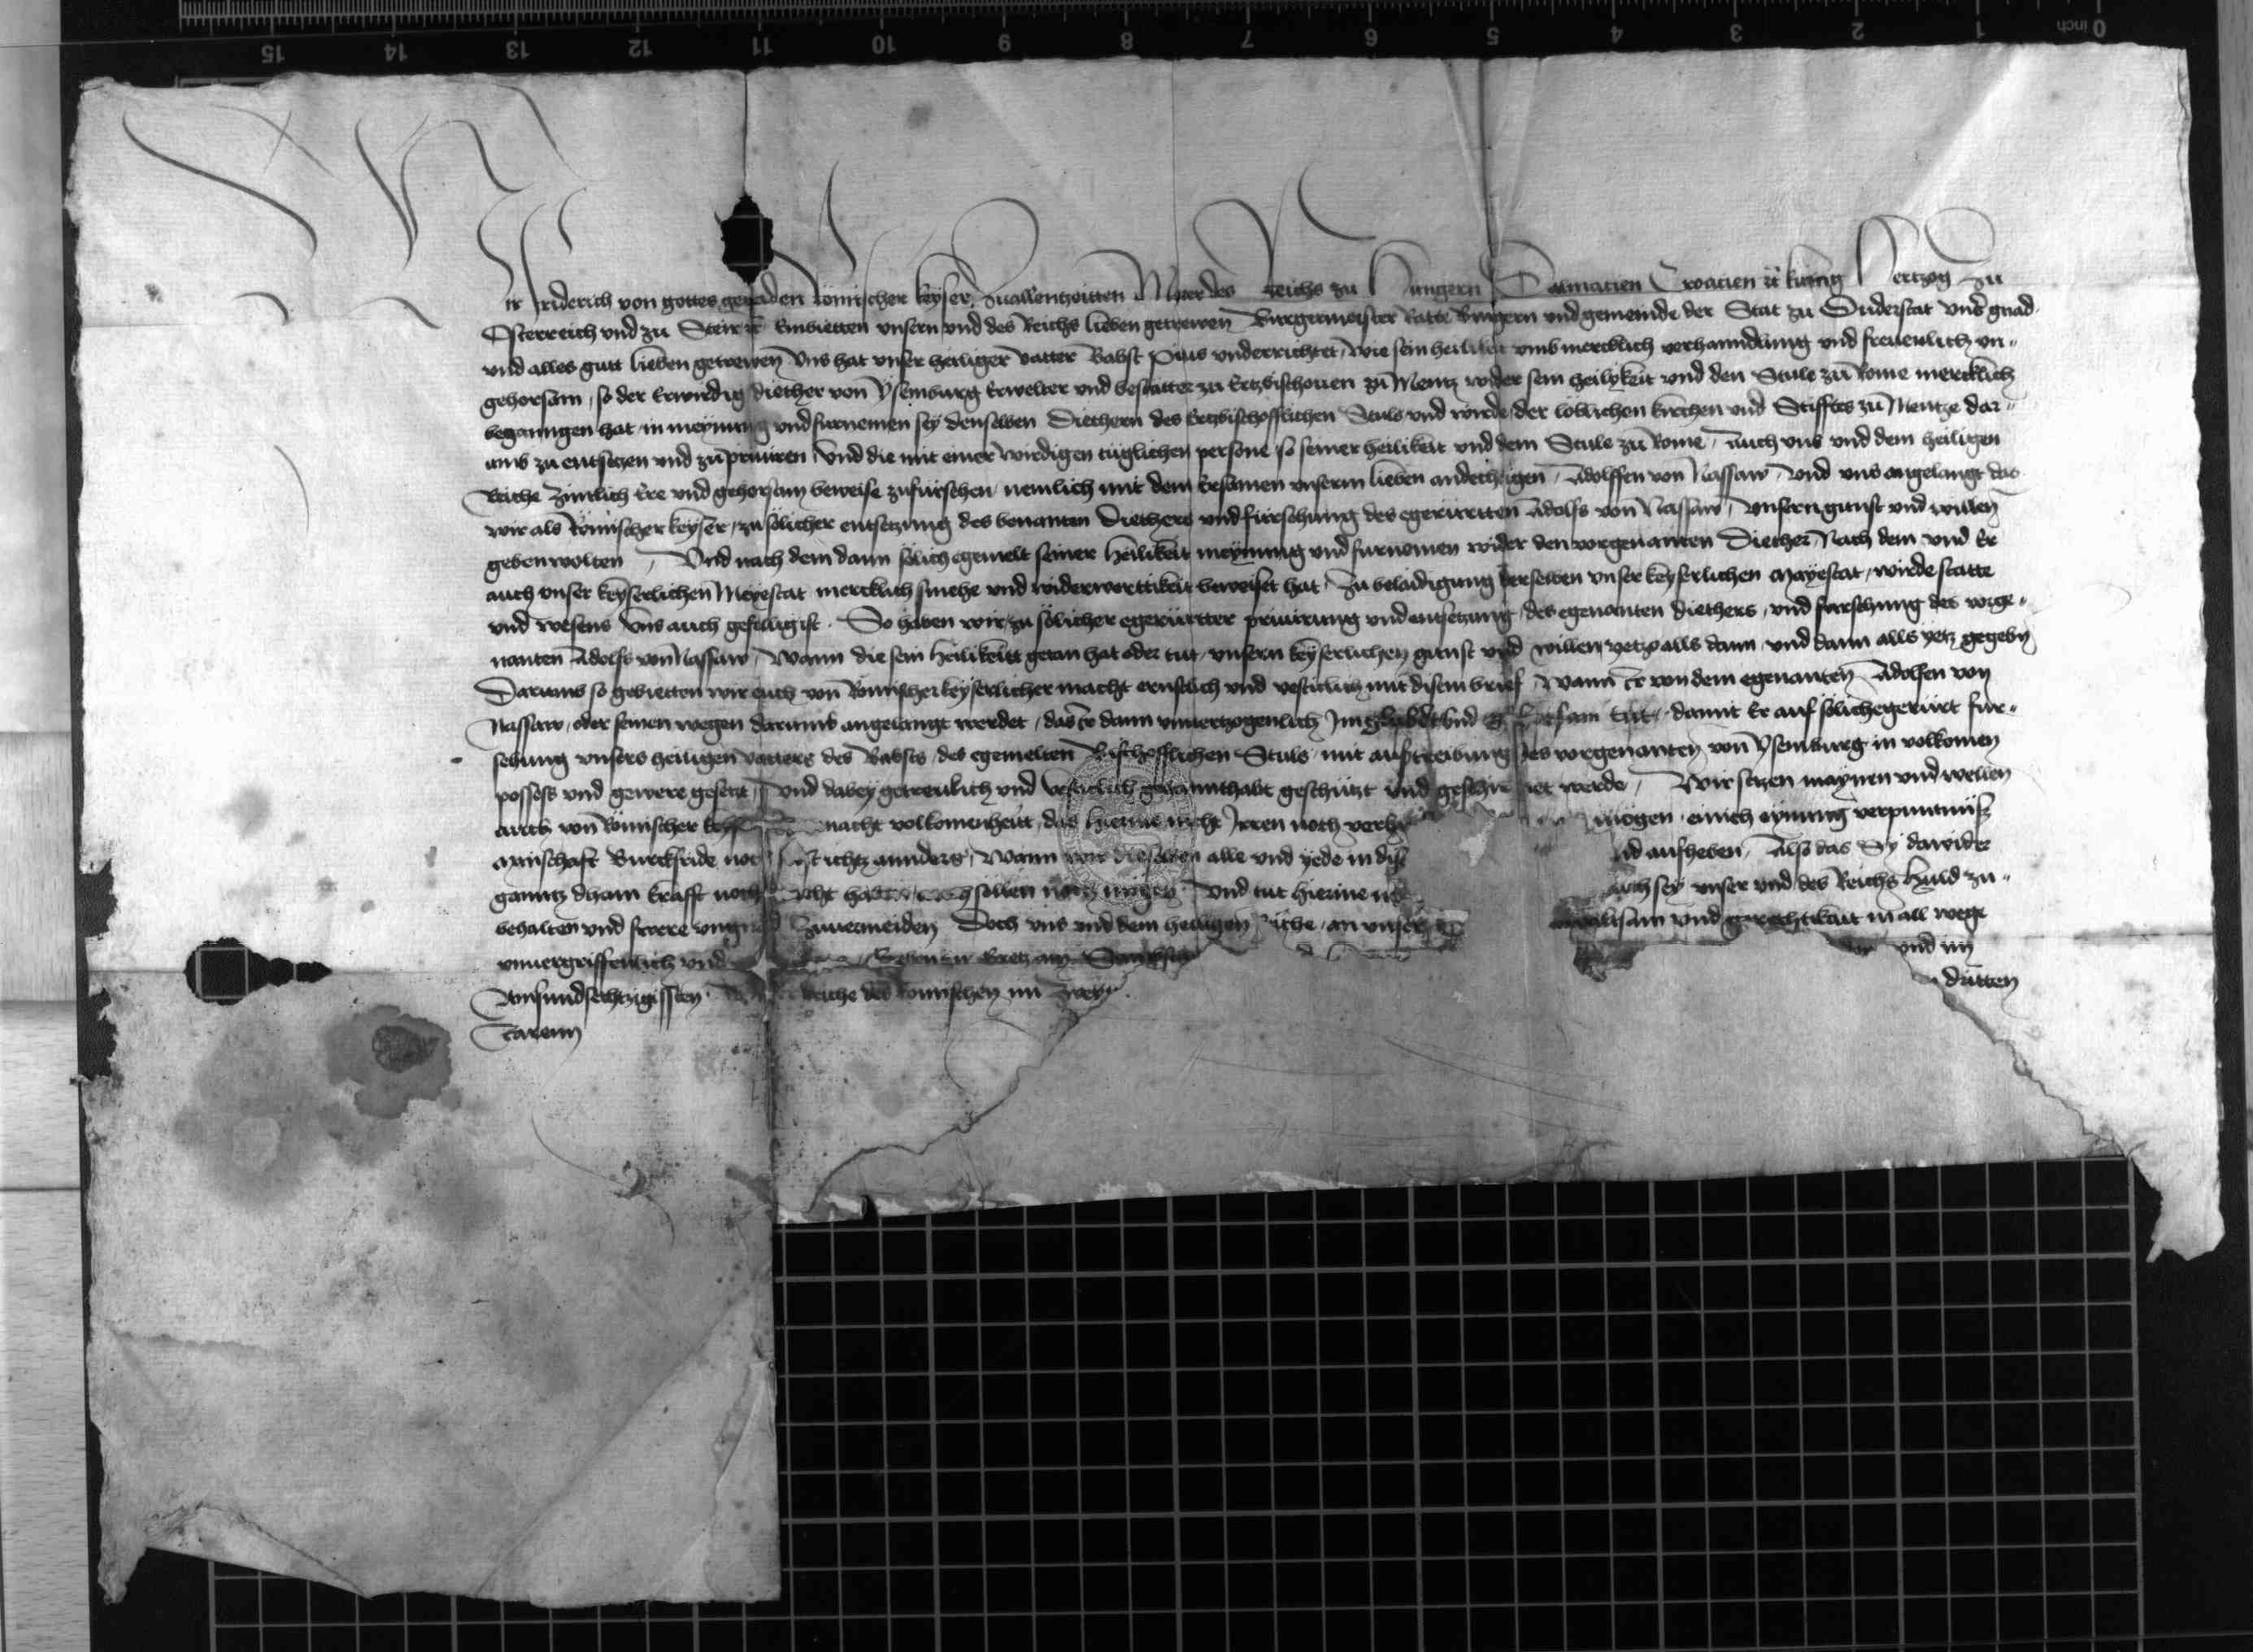 Wir Friderich von gottes genaden Römischer keyser zuallentzeitten Merer des Reichs zu Hungern Dalmacien Croacien ꝛc̃ kunig Hertzog zu
Osterreich vnd zu Steir ꝛc̃ Embietten vnsern vnd des Reichs lieben getrewen Burgermeister Ratte Burgern vnd gemeinde der Stat zu Duderstat vnser gnad
vnd alles gutt lieben getrewen Vns hat vnser heiliger vatter Babst Pius vnderrichtet, wie sein heilikeit vmb mercklich verhanndlung vnd freuenlich vn„
gehorsam, so der Erwirdig Diether von Ysemburg Erwelter vnd bestatter zu Ertzbischouen zu Mentz wider sein heilykeit vnd den Stule zu Rome mercklich
begangen hat in meynung vnd furnemen sey denselben Diethern des Ertzbischofflichen Stuls vnd wirde der loblichen kirchen vnd Stifftes zu Mentze dar„
umb zu entsetzen vnd zu priuiren, vnd die mit einer wirdigen tüglichen persone so seiner heilikeit vnd dem Stule zu Rome, auch vns vnd dem heiligen
Reiche zimlich Ere vnd gehorsam beweise zufürsehen nemlich mit dem Ersamen vnserm lieben andechtigen, Adolffen von Nassaw, vnd vns angelangt das
wir als Römischer keyser, zu sölicher entsetzung des benanten Diethers vnd fürsehung des egerürtten Adolfs von Nassaw, vnsern gunst vnd willen
geben wolten, Vnd nach dem dann sölich egemelt seiner heilikeit meynung vnd furnemen wider den vorgenanten Diether, Nach dem vnd Er
auch vnser keyserlichen Mayestat mercklich smehe vnd widerwerttikeit beweiset hat, zu beladigung derselben vnser keyserlichen Mayestat, wirde statte
vnd wesens Vns auch gefellig ist. So haben wir zu sölicher egerürtter priuirung vnd entsetzung des egenanten diethers, vnd fursehung des vorge„
nanten Adolfs von Nassaw, Wann die sein heilikeitt getan hat oder tut, vnsern keyserlichen gunst vnd willen, yetz alls dann, vnd dann alls yetz gegeben
Darumb so gebietten wir euch von Römischer keyserlicher macht ernstlich vnd vesticlich mit disem brief, Wann Ir von dem egenanten Adolfen von
Nassaw, oder seinen wegen darumb angelangt werdet, das Ir dann vnuertzogenlich Im gelubdt vnd gehorsam tut, damit Er auf sölich egerürt fur„
sehung vnsers heiligen vatters des Babsts, des egemelten Bischofflichen Stuls mit austreibung des vorgenanten von Ysemburg in volkomen
possess vnd gewere gesetzt, vnd dabey getreulich vnd vesticlich gehannthabt geschützt vnd geschirmet werde, Wir setzen maynen vnd wellen
auch von Römischer keys macht volkomenheitt, das hierine nicht Irren noch verh mögen, einich eynung verpuntnuß
aynschaft Burckfride noch sust ichtz annders, Wann wir dieselben alle vnd yede in dis nd aufheben, Also das Sy dawider
ganntz dhain krafft noch macht haben, noch söllen noch mögen Vnd tut hierine auch sey vnser vnd des Reichs huld zu„
behalten vnd swere vngnad zuuermeiden Doch vns vnd dem heiligen Reiche, an vnser waltsam vnd gerechtikeit in all wege
vnuergriffenlich vnd Geben zu Gretz am vnd im
Vnsundsechtzigissten Reiche des Römischen im Zwey dritten
Jarenn